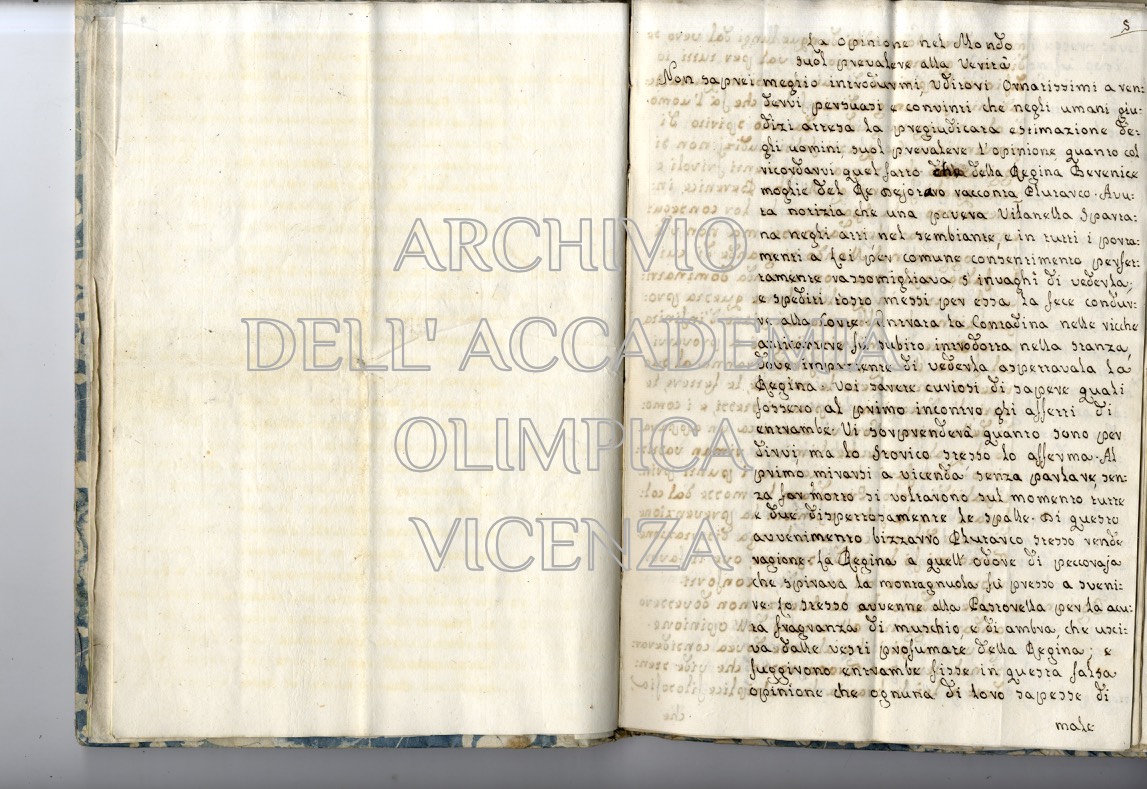 5
La Opinione nel Mondo
suol prevalere alla Verità
Non saprei meglio introdurmi, Uditori Ornatissimi a ren-
dervi persuasi e convinti che negli umani giu-
dizi attesa la pregiudicata estimazione de-
gli uomini, suol prevalere l'opinione quanto col
ricordarvi quel fatto della Regina Berenice
moglie del Re Dejotaro racconta Plutarco. Avu-
ta notizia che una povera Vilanella Sparta-
na negli atti nel sembiante, e in tutti i porta-
menti a lei per comune consentimento perfet-
tamente rassomigliava s'invaghì di vederla;
e spediti tosto messi per essa la fece condur-
re alla Corte. Entrata la Contadina nelle ricche
anticamere fu subito introdotta nella stanza,
dove impaziente di vederla aspettavala la
Regina. Voi sarete curiosi di sapere quali
fossero al primo incontro gli affetti di
entrambe. Vi sorprenderà quanto sono per
dirvi, ma lo Storico stesso lo afferma. Al
primo mirarsi a vicenda senza parlare sen-
za far motto si voltarono sul momento tutte
e due dispettosamente le spalle. Di questo
avvenimento bizzarro Plutarco stesso rende
ragione. La Regina a quell'odore di pecoraja
che spirava la montagnuola fu presso a sveni-
re. Lo stesso avvenne alla Pastorella per la acu-
ta fragranza di muschio e di ambra, che usci-
va dalle vesti profumate della Regina; e
fuggirono entrambe fisse in questa falsa
opinione che ognuna di loro sapesse di
male
ARCHIVIO
DELL' ACCADEMIA
OLIMPICA
VICENZA